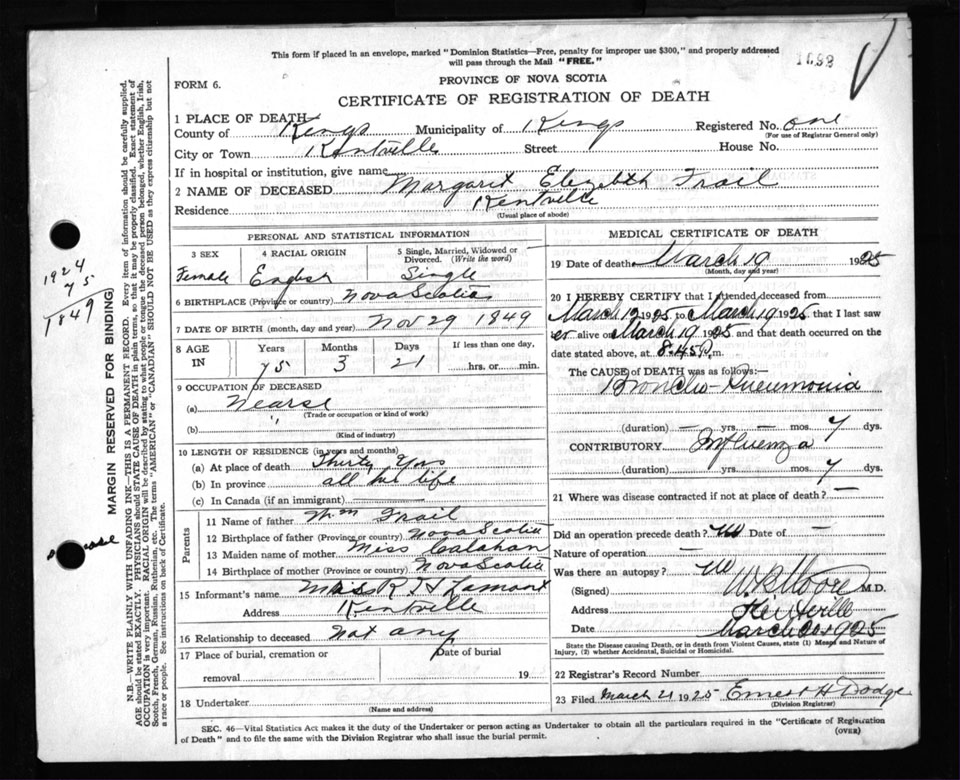 This form if placed in an envelope, marked "Dominion Statistics—Free, penalty for improper use $300," and properly addressed
will pass through the Mail "FREE."
1698
PROVINCE OF NOVA SCOTIA
FORM 6.
CERTIFICATE OF REGISTRATION OF DEATH
1 PLACE OF DEATH
County of Kings Municipality of Kings Registered No. one
(For use of Registrar General only)
City or Town Kentville Street House No.
If in hospital or institution, give name
2 NAME OF DECEASED Margaret Elizabeth Trail
Residence Kentville
(Usual place of abode)
PERSONAL AND STATISTICAL INFORMATION
3 SEX 4 RACIAL ORIGIN 5 Single, Married, Widowed or
Divorced. (Write the word)
Female English Single
6 BIRTHPLACE (Province or country) Nova Scotia
7 DATE OF BIRTH (month, day and year) Nov 29 1849
8 AGE IN Years Months Days If less than one day,
75 3 21 hrs. or min.
9 OCCUPATION OF DECEASED
(a) Nearse
(Trade or occupation or kind of work)
(b) "
(Kind of industry)
10 LENGTH OF RESIDENCE (in years and months)
(a) At place of death Thirty Yrs
(b) In province all her life
(c) In Canada (if an immigrant)
Parents
11 Name of father Wm Trail
12 Birthplace of father (Province or country) Nova Scotia
13 Maiden name of mother Miss Calahan
14 Birthplace of mother (Province or country) Nova Scotia
15 Informant's name R H Lamont
Address Kentville
16 Relationship to deceased not any
17 Place of burial, cremation or Date of burial
removal 19
18 Undertaker
(Name and address)
MEDICAL CERTIFICATE OF DEATH
19 Date of death March 19 1925
(Month, day and year)
20 I HEREBY CERTIFY that I attended deceased from
March 12 1925 to March 19 1925 that I last saw
er alive on March 19 1925 and that death occurred on
date stated above, at 8.45 P. m.
The CAUSE OF DEATH was as follows:
Broncho-Pneumonia
(duration) — yrs. — mos. 7 dys.
CONTRIBUTORY Influenza
(duration) yrs. mos. 7 dys.
21 Where was disease contracted if not at place of death? —
Did an operation precede death? No Date of —
Nature of operation —
Was there an autopsy? No
(Signed) Moore M.D.
Address Kentville
Date March 20 1925
State the Disease causing Death, or in death from Violent Causes, state (1) Means and Nature of
Injury, (2) whether Accidental, Suicidal or Homicidal.
22 Registrar's Record Number
23 Filed March 21 1925 Ernest H Dodge
(Division Registrar)
SEC. 46—Vital Statistics Act makes it the duty of the Undertaker or person acting as Undertaker to obtain all the particulars required in the "Certificate of Registration
of Death" and to file the same with the Division Registrar who shall issue the burial permit.
(OVER)
1924
75
1849
MARGIN RESERVED FOR BINDING
N.B.—WRITE PLAINLY WITH UNFADING INK—THIS IS A PERMANENT RECORD. Every item of information should be carefully supplied.
AGE should be stated EXACTLY. PHYSICIANS should STATE CAUSE OF DEATH in plain terms, so that it may be properly classified. Exact statement of
OCCUPATION is very important. RACIAL ORIGIN will be described by stating to what people or tongue the deceased person belonged, whether English, Irish,
Scotch, French, German, Russian, Ruthenian, etc. The terms "AMERICAN" or "CANADIAN" SHOULD NOT BE USED as they express citizenship but not
a race or people. See instructions on back of Certificate.